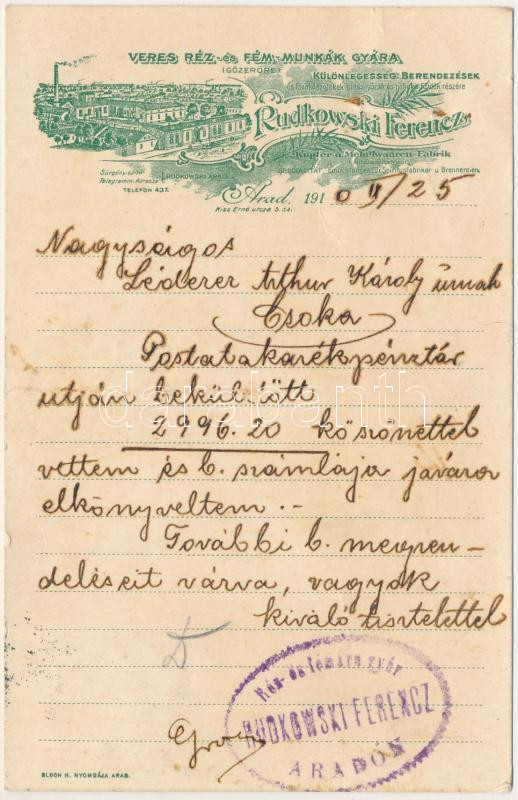 VERES RÉZ- és FÉM-MUNKÁK GYÁRA
(GŐZERŐRE)
KÜLÖNLEGESSÉG: BERENDEZÉSEK
Rudkowski Ferencz
Kupfer u. Metallwaaren-Fabrik
SPECIALITÄT: Einrichtungen für Spiritusfabriken u. Brennereien.
Sürgöny-czim
Telegramm-Adresse
RUDKOWSKI ARAD
TELEFON 437.
Arad, 1910 II/25
Kiss Ernő utcza 5 sz.
Nagyságos
Léderer Arthur Károly úrnak
Csoka
Postatakarékpénztár
utján beküldött
2996.20 köszönettel
vettem és b. számlája javára
elkönyveltem.-
További b. megren-
deléseit várva, vagyok
kiváló tisztelettel
Réz- és fémáru gyár
RUDKOWSKI FERENCZ
ARADON
BLOCH H. NYOMDÁJA ARAD.
darabanth